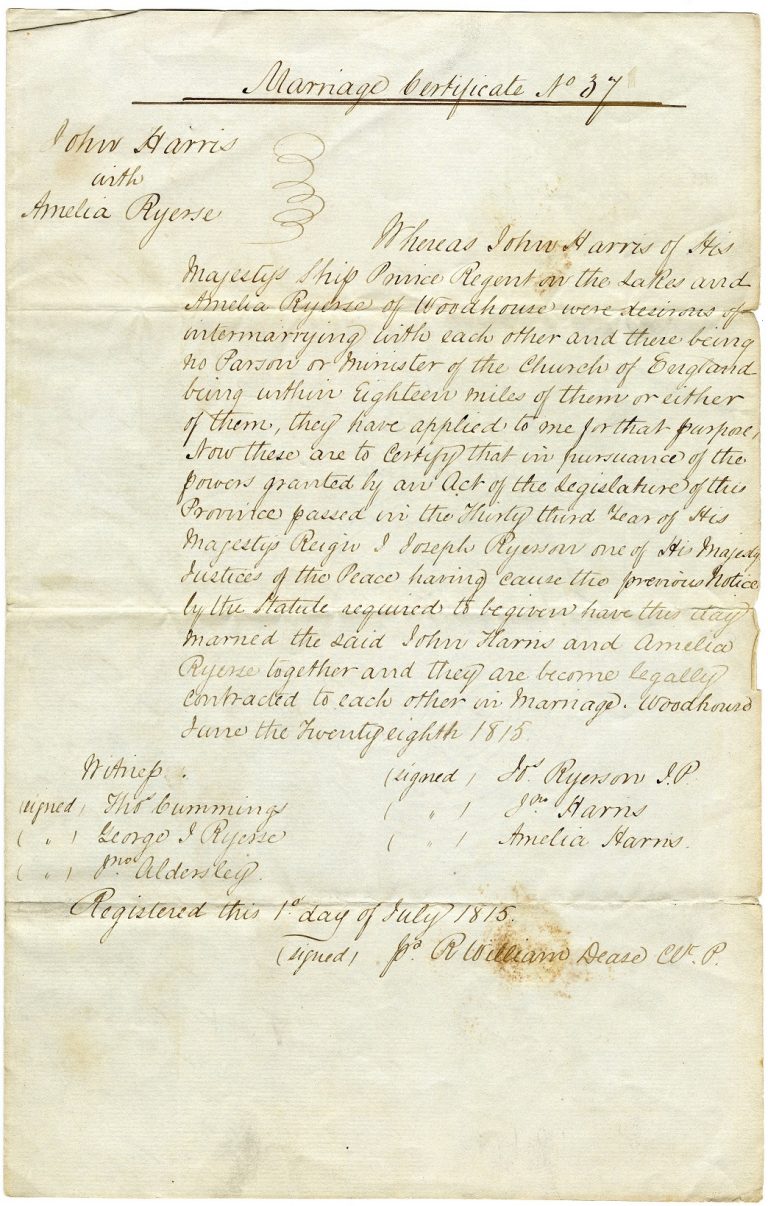 Marriage Certificate No 37
John Harris
with
Amelia Ryerse
Whereas John Harris of His
Majestys Ship Prince Regent on the Lakes and
Amelia Ryerse of Woodhouse were desirous of
intermarrying with each other and there being
no Parson or Minister of the Church of England
being within Eighteen miles of them or either
of them, they have applied to me for that purpose,
Now these are to Certify that in pursuance of the
powers granted by an Act of the Legislature of this
Province passed in the Thirty third Year of His
Majestys Reign I Joseph Ryerson one of His Majesty
Justices of the Peace having cause the previous Notice
by the Statute required to be given have this day
married the said John Harris and Amelia
Ryerse together and they are become legally
contracted to each other in Marriage. Woodhouse
June the Twenty eighth 1815.
Witness.
(signed) Thos Cummings
( " ) George J Ryerse
( " ) Jno Aldersley.
(signed) Jos Ryerson J.P.
( " ) Jno Harris
( " ) Amelia Harris.
Registered this 1st day of July 1815.
(signed) R William Dease P.